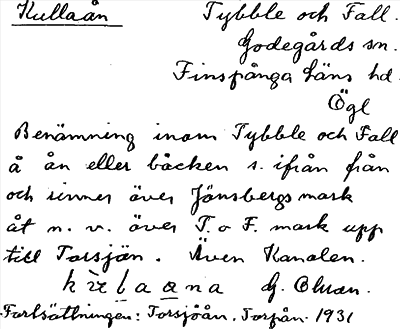 Kullaån
Tybble och Fall.
Godegårds sn.
Finspånga läns hd.
Ögl
Benämning inom Tybble och Fall
å ån eller bäcken s. ifrån från
och rinner över Jönsbergs mark
åt n. v. över T. o F. mark upp
till Torsjön. Även Kanalen.
G. Ohson.
Fortsättningen: Torsjöån. Torpån. 1931